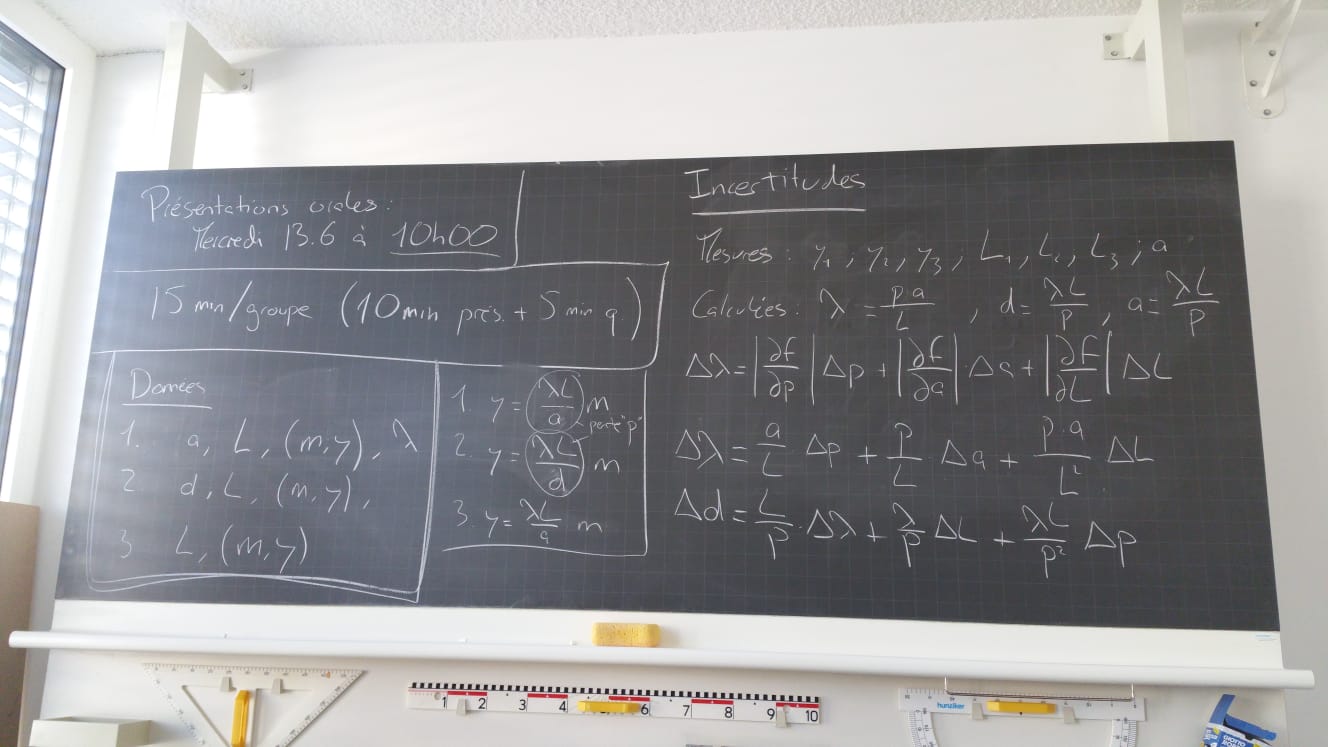 Présentations orales :
Mercredi 13.6 à 10h00
15 min/groupe (10 min prés. + 5 min q.)
Données
1. a, L, (m,y), λ
2 d, L, (m,y),
3 L, (m,y)
1. y = λL/a m
pente "p"
2. y = λL/d m
3. y = λL/a m
Incertitudes
Mesures : y₁, y₂, y₃, L₁, L₂, L₃ ; a
Calculées : λ = p·a/L , d = λL/p , a = λL/p
Δλ = |∂f/∂p| Δp + |∂f/∂a| · Δa + |∂f/∂L| ΔL
Δλ = a/L Δp + p/L · Δa + p·a/L² ΔL
Δd = L/p · Δλ + λ/p ΔL + λL/p² Δp
1 2 3 4 5 6 7 8 9 10
hunziker
GIOTTO